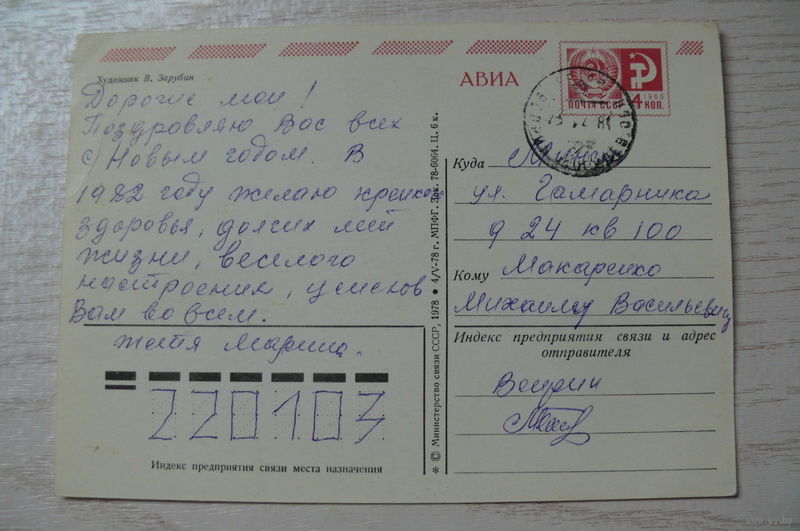 Художник В. Зарубин
Дорогие мои!
Поздравляю Вас всех
с Новым годом. В
1982 году желаю крепкого
здоровья, долгих лет
жизни, веселого
настроения, успехов
Вам во всем.
Марина.
220103
Индекс предприятия связи места назначения
* © Министерство связи СССР, 1978 ● 4/V-78 г. МПФГ. Зак. 78-6064. Ц. 6 к.
АВИА
ПОЧТА СССР
1966
4 КОП.
Куда Минск
ул. Гамарника
д 24 кв 100
Кому Макаренко
Михаилу Васильевичу
Индекс предприятия связи и адрес
отправителя